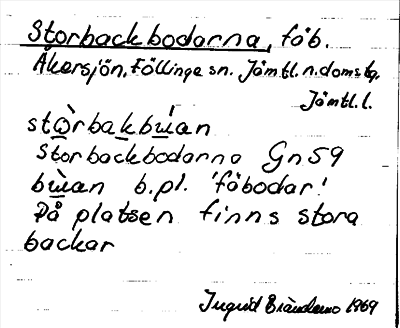 Storbackbodarna, fäb.
Åkersjön, Föllinge sn. Jämtl. n. doms tg.
Jämtl. l.
stɷ̀rbakbɯ́an
Storbackbodarna Gn59
bɯ̀an b.pl. 'fäbodar'
På platsen finns stora
backar
Ingrid Brändemo 1969